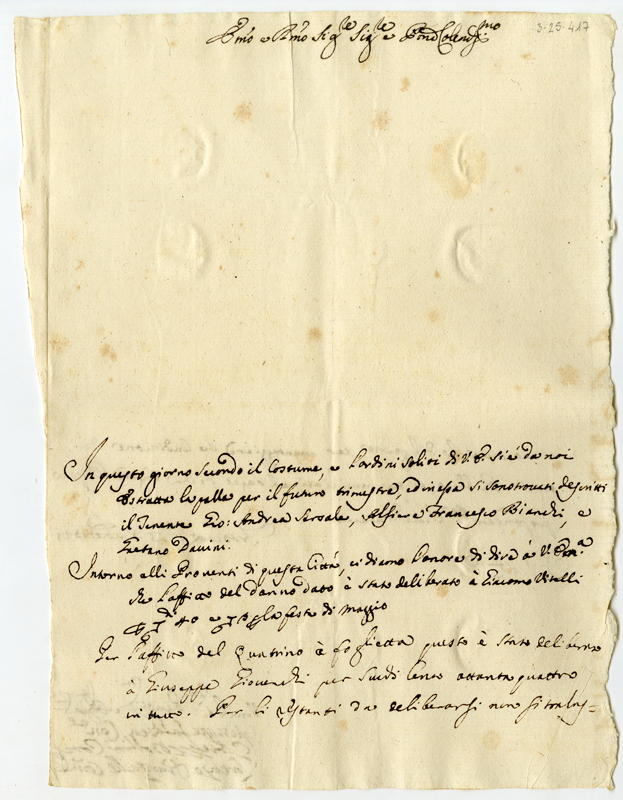 3-25-417
Emo e Rmo Sig.re Sig.re e Pron Colend.mo
In questo giorno secondo il Costume, e l'ordini soliti di V. E. si è da noi
estratta la palla per il futuro trimestre, ed in essa si sono trovati descritti
il Tenente Gio: Andrea Sersale, Alfiere Francesco Bianchi, e
Gaetano Davini.
Intorno alli Proventi di questa Città, ci diamo l'onore di dire à V. Em.a
che l'affitto del danno dato è stato deliberato à Giacomo Vitelli
40 e p la feste di Maggio
Per l'affitto del Quatrino à foglietta questo è stato deliberato
à Giuseppe Giovenchi per scudi cento ottanta quattro
in tutto. Per li restanti da deliberarsi non si tralas=